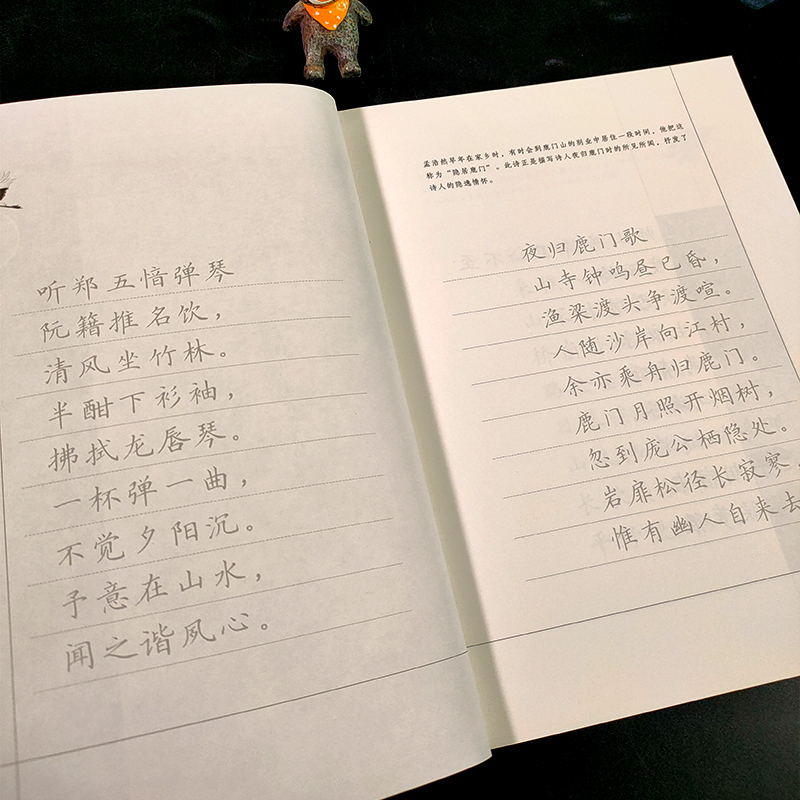 听郑五愔弹琴
阮籍推名饮，
清风坐竹林。
半酣下衫袖，
拂拭龙唇琴。
一杯弹一曲，
不觉夕阳沉。
予意在山水，
闻之谐夙心。
孟浩然早年在家乡时，有时会到鹿门山的别业中居住一段时间，他把这
称为“隐居鹿门”。此诗正是描写诗人夜归鹿门时的所见所闻，抒发了
诗人的隐逸情怀。
夜归鹿门歌
山寺钟鸣昼已昏，
渔梁渡头争渡喧。
人随沙岸向江村，
余亦乘舟归鹿门。
鹿门月照开烟树，
忽到庞公栖隐处。
岩扉松径长寂寥，
惟有幽人自来去